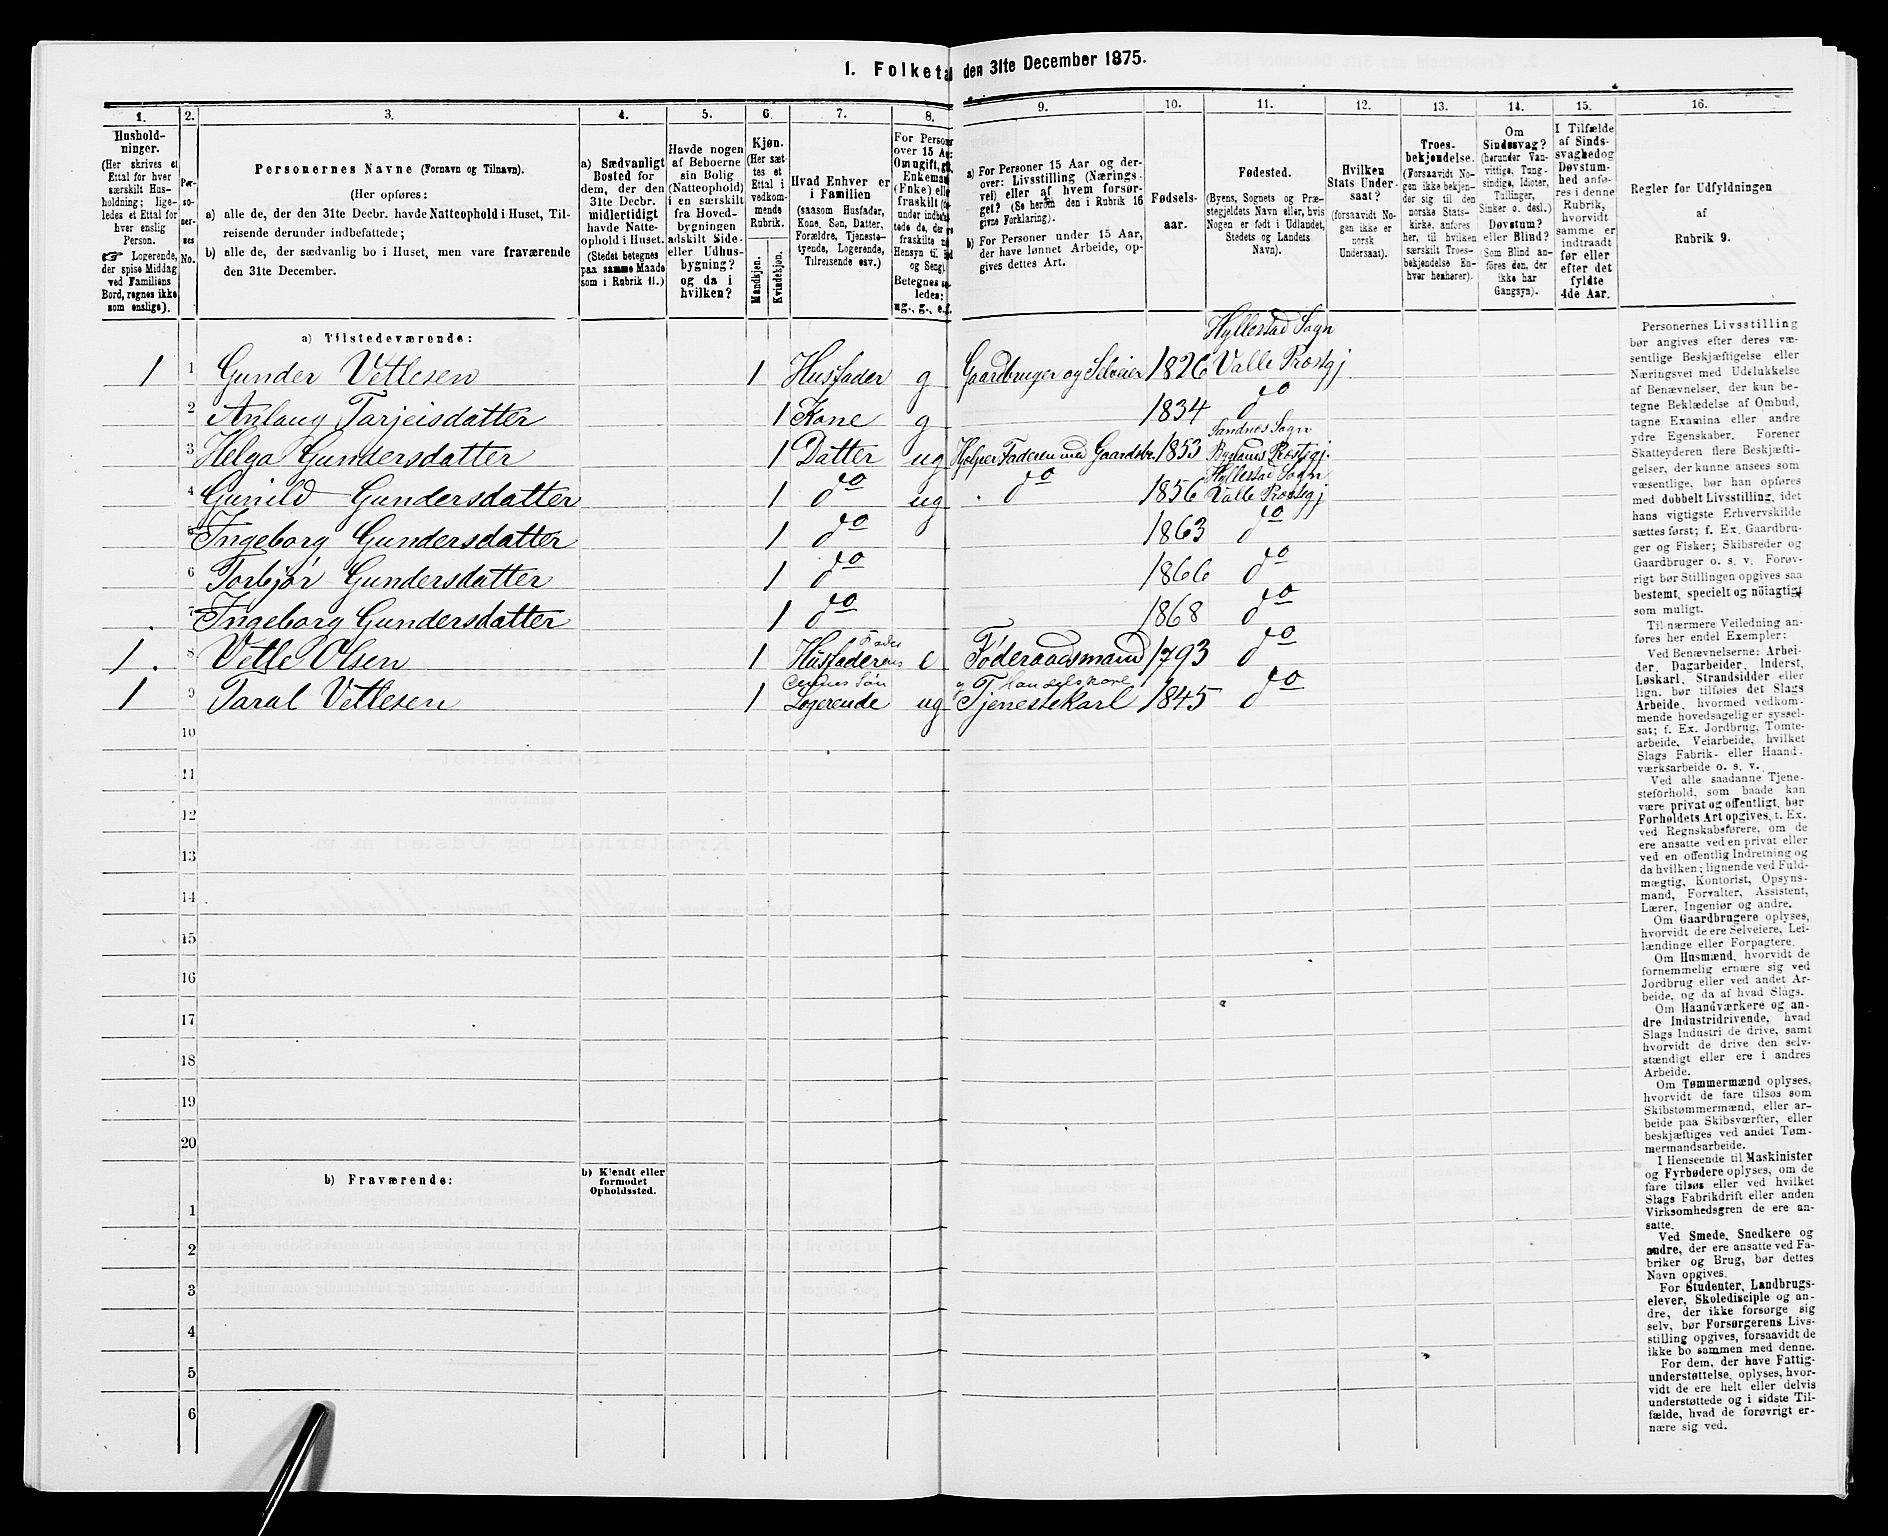 1. Folketal den 31te December 1875.
1. 2. 3. 4. 5. 6. 7. 8. 9. 10. 11. 12. 13. 14. 15. 16.
Husholdninger.
(Her skrives et
Ettal for hver
særskilt Husholdning;
ligeledes et Ettal for
hver enslig
Person.
Logerende,
der spise Middag
ved Familiens
Bord, regnes ikke
som enslige).
Personernes No.
Personernes Navne (Fornavn og Tilnavn).
(Her opføres:
a) alle de, der den 31te Decbr. havde Natteophold i Huset, Tilreisende
derunder indbefattede;
b) alle de, der sædvanlig bo i Huset, men vare fraværende
den 31te December.
a) Sædvanligt
Bosted for
dem, der den
31te Decbr.
midlertidigt
havde Natteophold
i Huset.
(Stedet betegnes
paa samme Maade
som i Rubrik 11.)
Havde nogen
af Beboerne
sin Bolig
(Natteophold)
i en særskilt
fra Hovedbygningen
adskilt Side-
eller Udhusbygning?
og da i
hvilken?
Kjøn.
(Her sættes
et
Ettal i
vedkommende
Rubrik.
Mandkjøn.
Kvindekjøn.
Hvad Enhver er
i Familien
(saasom Husfader,
Kone, Søn, Datter,
Forældre, Tjenestetyende,
Logerende,
Tilreisende osv.)
For Person
over 15 Aar:
Om ugift, gift,
Enkemand
(Enke) eller
fraskilt
Betegnes saaledes:
ug., g., e.,
a) For Personer 15 Aar og derover:
Livsstilling (Næringsvei)
eller af hvem forsørget?
(Se herom den i Rubrik 16
givne Forklaring).
b) For Personer under 15 Aar,
der have lønnet Arbeide, opgives
dettes Art.
Fødselsaar.
Fødested.
(Byens, Sognets og Præstegjeldets
Navn eller, hvis
Nogen er født i Udlandet,
Stedets og Landets
Navn).
Hvilken
Stats Undersaat?
(forsaavidt Nogen
ikke er
norsk
Undersaat).
Troesbekjendelse.
(Forsaavidt Nogen
ikke bekjender
sig til den
norske Statskirke,
anføres
her, til hvilken
særskilt Troesbekjendelse
Enhver
henhører).
Om
Sindssvag?
(herunder Vanvittige,
Tungsindige,
Idioter,
Tullinger,
Sinker o. desl.)
Døvstum?
eller Blind?
(Som Blind anføres
den, der
ikke har
Gangsyn).
I Tilfælde
af Sindssvaghed
og
Døvstumhed
anføres
i denne
Rubrik,
hvorvidt
samme er
indtraadt
før eller
efter det
fyldte
4de Aar.
Regler for Udfyldningen
af
Rubrik 9.
a) Tilstedeværende:
Hyllestad Sogn
1 1 Gunder Vetlesen 1 Husfader g Gaardbruger og Selveier 1826 Valle Præstgj.
2 Anlaug Tarjeisdatter 1 Kone g 1834 do
Sandnes Sogn
3 Helga Gundersdatter 1 Datter ug Hjelper Faderen med Gaardsbr. 1853 Byglands Præstgj.
Hyllestad Sogn
4 Gunild Gundersdatter 1 do ug do 1856 Valle Præstgj
5 Ingeborg Gundersdatter 1 do 1863 do
6 Torbjør Gundersdatter 1 do 1866 do
7 Ingeborg Gundersdatter 1 do 1868 do
Fader
1. 8 Vetle Olsen 1 Husfaderens e Føderaadsmand 1793 do
dennes Søn Handelskarl
1 9 Taral Vetlesen 1 Logerende ug Tjenestekarl 1845 do
10
11
12
13
14
15
16
17
18
19
20
b) Fraværende:
b) Kjendt eller
formodet
Opholdssted.
1
2
3
4
5
6
Personernes Livsstilling
bør angives efter deres væsentlige
Beskjæftigelse eller
Næringsvei med Udelukkelse
af Benævnelser, der kun betegne
Beklædelse af Ombud,
tagne Examina eller andre
ydre Egenskaber. Forener
Skatteyderen flere Beskjæftigelser,
der kunne ansees som
væsentlige, bør han opføres
med dobbelt Livsstilling, idet
hans vigtigste Erhvervskilde
sættes først; f. Ex. Gaardbruger
og Fisker; Skibsreder og
Gaardbruger o. s. v. Forøvrigt
bør Stillingen opgives saa
bestemt, specielt og nøiagtigt
som muligt.
Til nærmere Veiledning anføres
her endel Exempler:
Ved Benævnelserne: Arbeider,
Dagarbeider, Inderst,
Løskarl, Strandsidder eller
lign. bør tilføies det Slags
Arbeide, hvormed vedkommende
hovedsagelig er sysselsat;
f. Ex. Jordbrug, Tomtearbeide,
Veiarbeide, hvilket
Slags Fabrik- eller Haandværksarbeide
o. s. v.
Ved alle saadanne Tjenesteforhold,
som baade kan
være privat og offentligt, bør
Forholdets Art opgives, t. Ex.
ved Regnskabsførere, om de
ere ansatte ved en privat eller
ved en offentlig Indretning og
da hvilken; lignende ved Fuldmægtig,
Kontorist, Opsynsmand,
Forvalter, Assistent,
Lærer, Ingeniør og andre.
Om Gaardbrugere oplyses,
hvorvidt de ere Selveiere, Leilændinge
eller Forpagtere.
Om Husmænd, hvorvidt de
fornemmelig ernære sig ved
Jordbrug eller ved andet Arbeide,
og da af hvad Slags.
Om Haandværkere og andre
Industridrivende, hvad
Slags Industri de drive, samt
hvorvidt de drive den selvstændigt
eller ere i andres
Arbeide.
Om Tømmermænd oplyses,
hvorvidt de fare tilsøs som
Skibstømmermænd, eller arbeide
paa Skibsværfter, eller
beskjæftiges ved andet Tømmermandsarbeide.
I Henseende til Maskinister
og Fyrbødere oplyses, om de
fare tilsøs eller ved hvilket
Slags Fabrikdrift eller anden
Virksomhedsgren de ere ansatte.
Ved Smede, Snedkere og
andre, der ere ansatte ved Fabriker
og Brug, bør dettes
Navn opgives.
For Studenter, Landbrugselever,
Skoledisciple og andre,
der ikke forsørge sig
selv, bør Forsørgerens Livsstilling
opgives, forsaavidt de
ikke bo sammen med denne.
For dem, der have Fattigunderstøttelse,
oplyses, hvorvidt
de ere helt eller delvis
understøttede og i sidste Tilfælde,
hvad de forøvrigt ernære
sig ved.